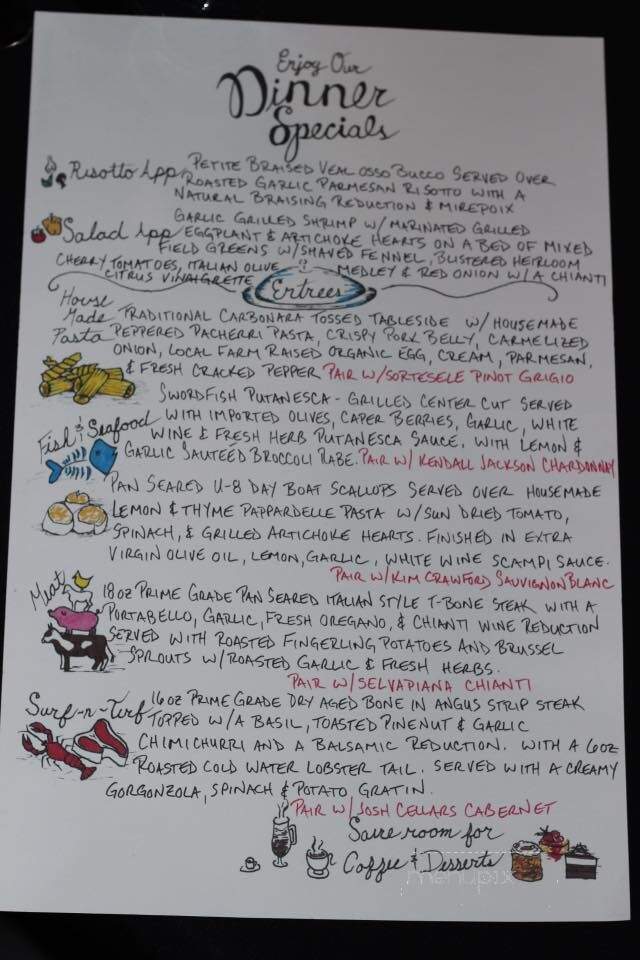 Enjoy Our
Dinner
Specials
Risotto App PETITE BRAISED VEAL OSSO BUCCO SERVED OVER
ROASTED GARLIC PARMESAN RISOTTO WITH A
NATURAL BRAISING REDUCTION & MIREPOIX
Salad App GARLIC GRILLED SHRIMP W/ MARINATED GRILLED
EGGPLANT & ARTICHOKE HEARTS ON A BED OF MIXED
FIELD GREENS W/SHAVED FENNEL, BLISTERED HEIRLOOM
CHERRY TOMATOES, ITALIAN OLIVE MEDLEY & RED ONION W/A CHIANTI
CITRUS VINAIGRETTE
Entrees
House Made Pasta TRADITIONAL CARBONARA TOSSED TABLESIDE W/HOUSEMADE
PEPPERED PACHERRI PASTA, CRISPY PORK BELLY, CARMELIZED
ONION, LOCAL FARM RAISED ORGANIC EGG, CREAM, PARMESAN,
& FRESH CRACKED PEPPER PAIR W/SORTESELE PINOT GRIGIO
Fish & Seafood SWORDFISH PUTANESCA - GRILLED CENTER CUT SERVED
WITH IMPORTED OLIVES, CAPER BERRIES, GARLIC, WHITE
WINE & FRESH HERB PUTANESCA SAUCE. WITH LEMON &
GARLIC SAUTEED BROCCOLI RABE. PAIR W/ KENDALL JACKSON CHARDONNAY
PAN SEARED U-8 DAY BOAT SCALLOPS SERVED OVER HOUSEMADE
LEMON & THYME PAPPARDELLE PASTA W/SUN DRIED TOMATO,
SPINACH, & GRILLED ARTICHOKE HEARTS. FINISHED IN EXTRA
VIRGIN OLIVE OIL, LEMON, GARLIC, WHITE WINE SCAMPI SAUCE.
PAIR W/KIM CRAWFORD SAUVIGNON BLANC
Meat 18oz PRIME GRADE PAN SEARED ITALIAN STYLE T-BONE STEAK WITH A
PORTABELLO, GARLIC, FRESH OREGANO, & CHIANTI WINE REDUCTION
SERVED WITH ROASTED FINGERLING POTATOES AND BRUSSEL
SPROUTS W/ROASTED GARLIC & FRESH HERBS.
PAIR W/SELVAPIANA CHIANTI
Surf-n-Turf 16oz PRIME GRADE DRY AGED BONE IN ANGUS STRIP STEAK
TOPPED W/A BASIL, TOASTED PINENUT & GARLIC
CHIMICHURRI AND A BALSAMIC REDUCTION. WITH A 6oz
ROASTED COLD WATER LOBSTER TAIL. SERVED WITH A CREAMY
GORGONZOLA, SPINACH & POTATO GRATIN.
PAIR W/JOSH CELLARS CABERNET
Save room for
Coffee & Desserts
menupix